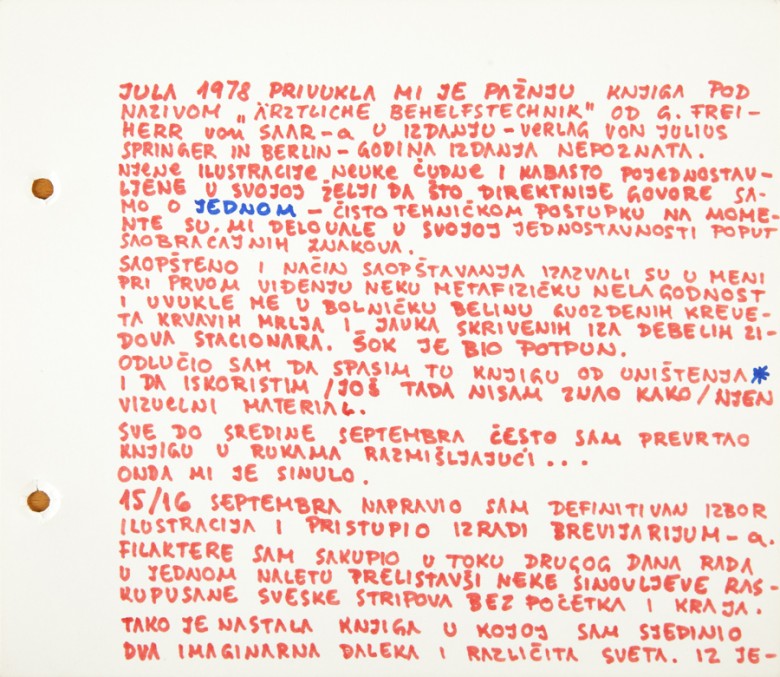 JULA 1978 PRIVUKLA MI JE PAŽNJU KNJIGA POD
NAZIVOM „ÄRZTLICHE BEHELFSTECHNIK" OD G. FREI-
HERR von SAAR-a U IZDANJU - VERLAG VON JULIUS
SPRINGER IN BERLIN - GODINA IZDANJA NEPOZNATA.
NJENE ILUSTRACIJE NEUKE ČUDNE I NABASTO POJEDNOSTAV-
LJENE U SVOJOJ ŽELJI DA ŠTO DIREKTNIJE GOVORE SA-
MO O JEDNOM - ČISTO TEHNIČKOM POSTUPKU NA MOME-
NTE SU. MI DELOVALE U SVOJOJ JEDNOSTAVNOSTI POPUT
SAOBRAĆAJNIH ZNAKOVA.
SAOPŠTENO I NAČIN SAOPŠTAVANJA IZAZVALI SU U MENI
PRI PRVOM VIĐENJU NEKU METAFIZIČKU NELAGODNOST
I UVUKLE ME U BOLNIČKU BELINU GVOZDENIH KREVE-
TA KRVAVIH MRLJA I JAUKA SKRIVENIH IZA DEBELIH ZI-
DOVA STACIONARA. ŠOK JE BIO POTPUN.
ODLUČIO SAM DA SPASIM TU KNJIGU OD UNIŠTENJA*
I DA ISKORISTIM /JOŠ TADA NISAM ZNAO KAKO/ NJEN
VIZUELNI MATERIAL.
SVE DO SREDINE SEPTEMBRA ČESTO SAM PREVRTAO
KNJIGU U RUKAMA RAZMIŠLJAJUĆI...
ONDA MI JE SINULO.
15/16 SEPTEMBRA NAPRAVIO SAM DEFINITIVAN IZBOR
ILUSTRACIJA I PRISTUPIO IZRADI BREVIJARIJUM-a.
FILAKTERE SAM SAKUPIO U TOKU DRUGOG DANA RADA
U JEDNOM NALETU PRELISTAVŠI NEKE SINOVLJEVE RAS-
KUPUSANE SVESKE STRIPOVA BEZ POČETKA I KRAJA.
TAKO JE NASTALA KNJIGA U KOJOJ SAM SJEDINIO
DVA IMAGINARNA DALEKA I RAZLIČITA SVETA. IZ JE-